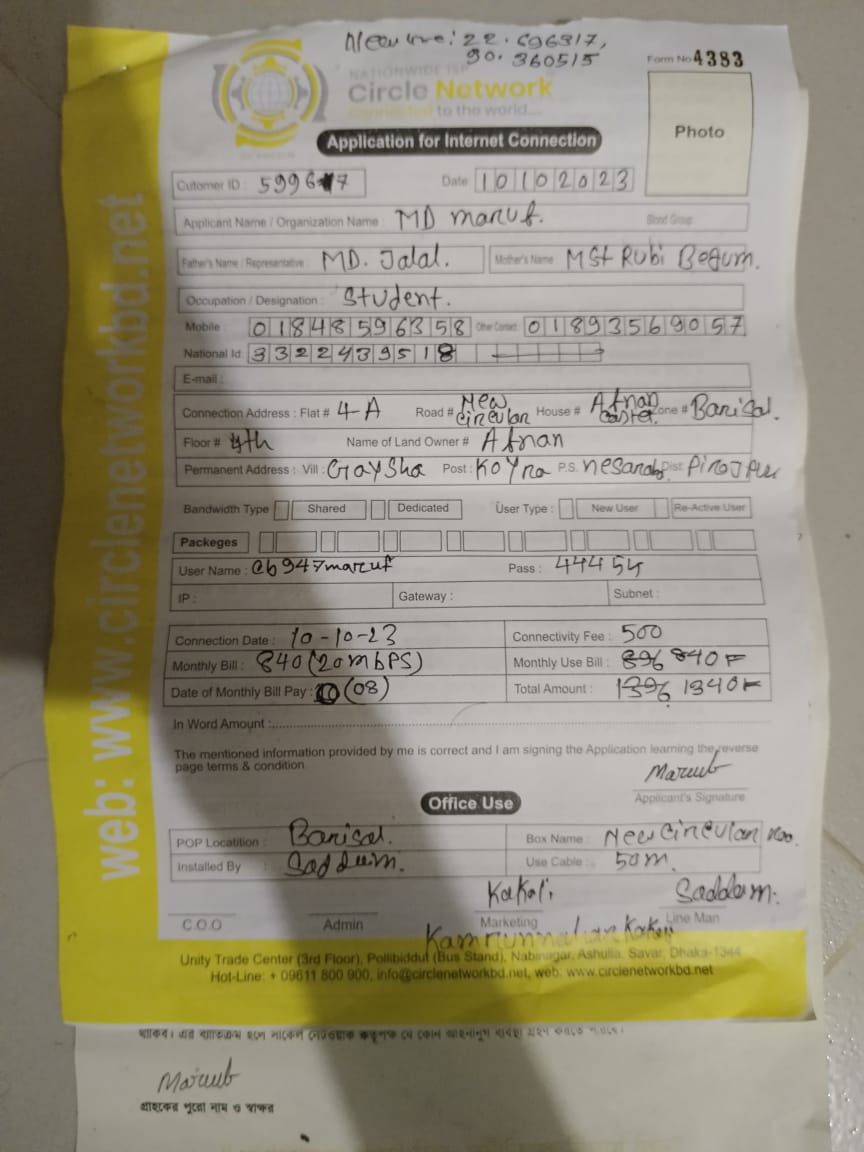 New line: 22.696317,
90.360515
Form No 4383
NATIONWIDE ISP
Circle Network
Connected to the world...
Application for Internet Connection
Photo
Cutomer ID : 5996 7
Date 10102023
Applicant Name / Organization Name : MD maruf.
Blood Group
Father's Name / Representative : MD. Jalal.
Mother's Name : MSt Rubi Begum.
Occupation / Designation : Student.
Mobile : 01848596358 Other Contact : 01893569057
National Id : 3322439518
E-mail :
Connection Address : Flat # 4-A Road # New circular House # Afnan Zone # Barisal.
Floor # 4th Name of Land Owner # Afnan
Permanent Address : Vill : Gaysha Post : Koyra P.S. nesarabad Dist: Pirojpur
Bandwidth Type Shared Dedicated User Type : New User Re-Active User
Packeges
User Name : cb947maruf Pass : 44454
IP : Gateway : Subnet :
Connection Date : 10-10-23 Connectivity Fee : 500
Monthly Bill : 840 (20mbPS) Monthly Use Bill : 896 840
Date of Monthly Bill Pay : 10 (08) Total Amount : 1396 1340
In Word Amount :
The mentioned information provided by me is correct and I am signing the Application learning the reverse
page terms & condition
Maruf
Applicant's Signature
Office Use
POP Locatition : Barisal. Box Name : New Circular
Installed By : Saddam. Use Cable : 50m.
Kakoli Saddam.
C.O.O Admin Marketing Line Man
Kamrunnahar Kakoli
Unity Trade Center (3rd Floor), Pollibiddut (Bus Stand), Nabinagar, Ashulia, Savar, Dhaka-1344
Hot-Line: + 09611 800 900, info@circlenetworkbd.net, web: www.circlenetworkbd.net
web: www.circlenetworkbd.net
Maruf
গ্রাহকের পুরো নাম ও স্বাক্ষর